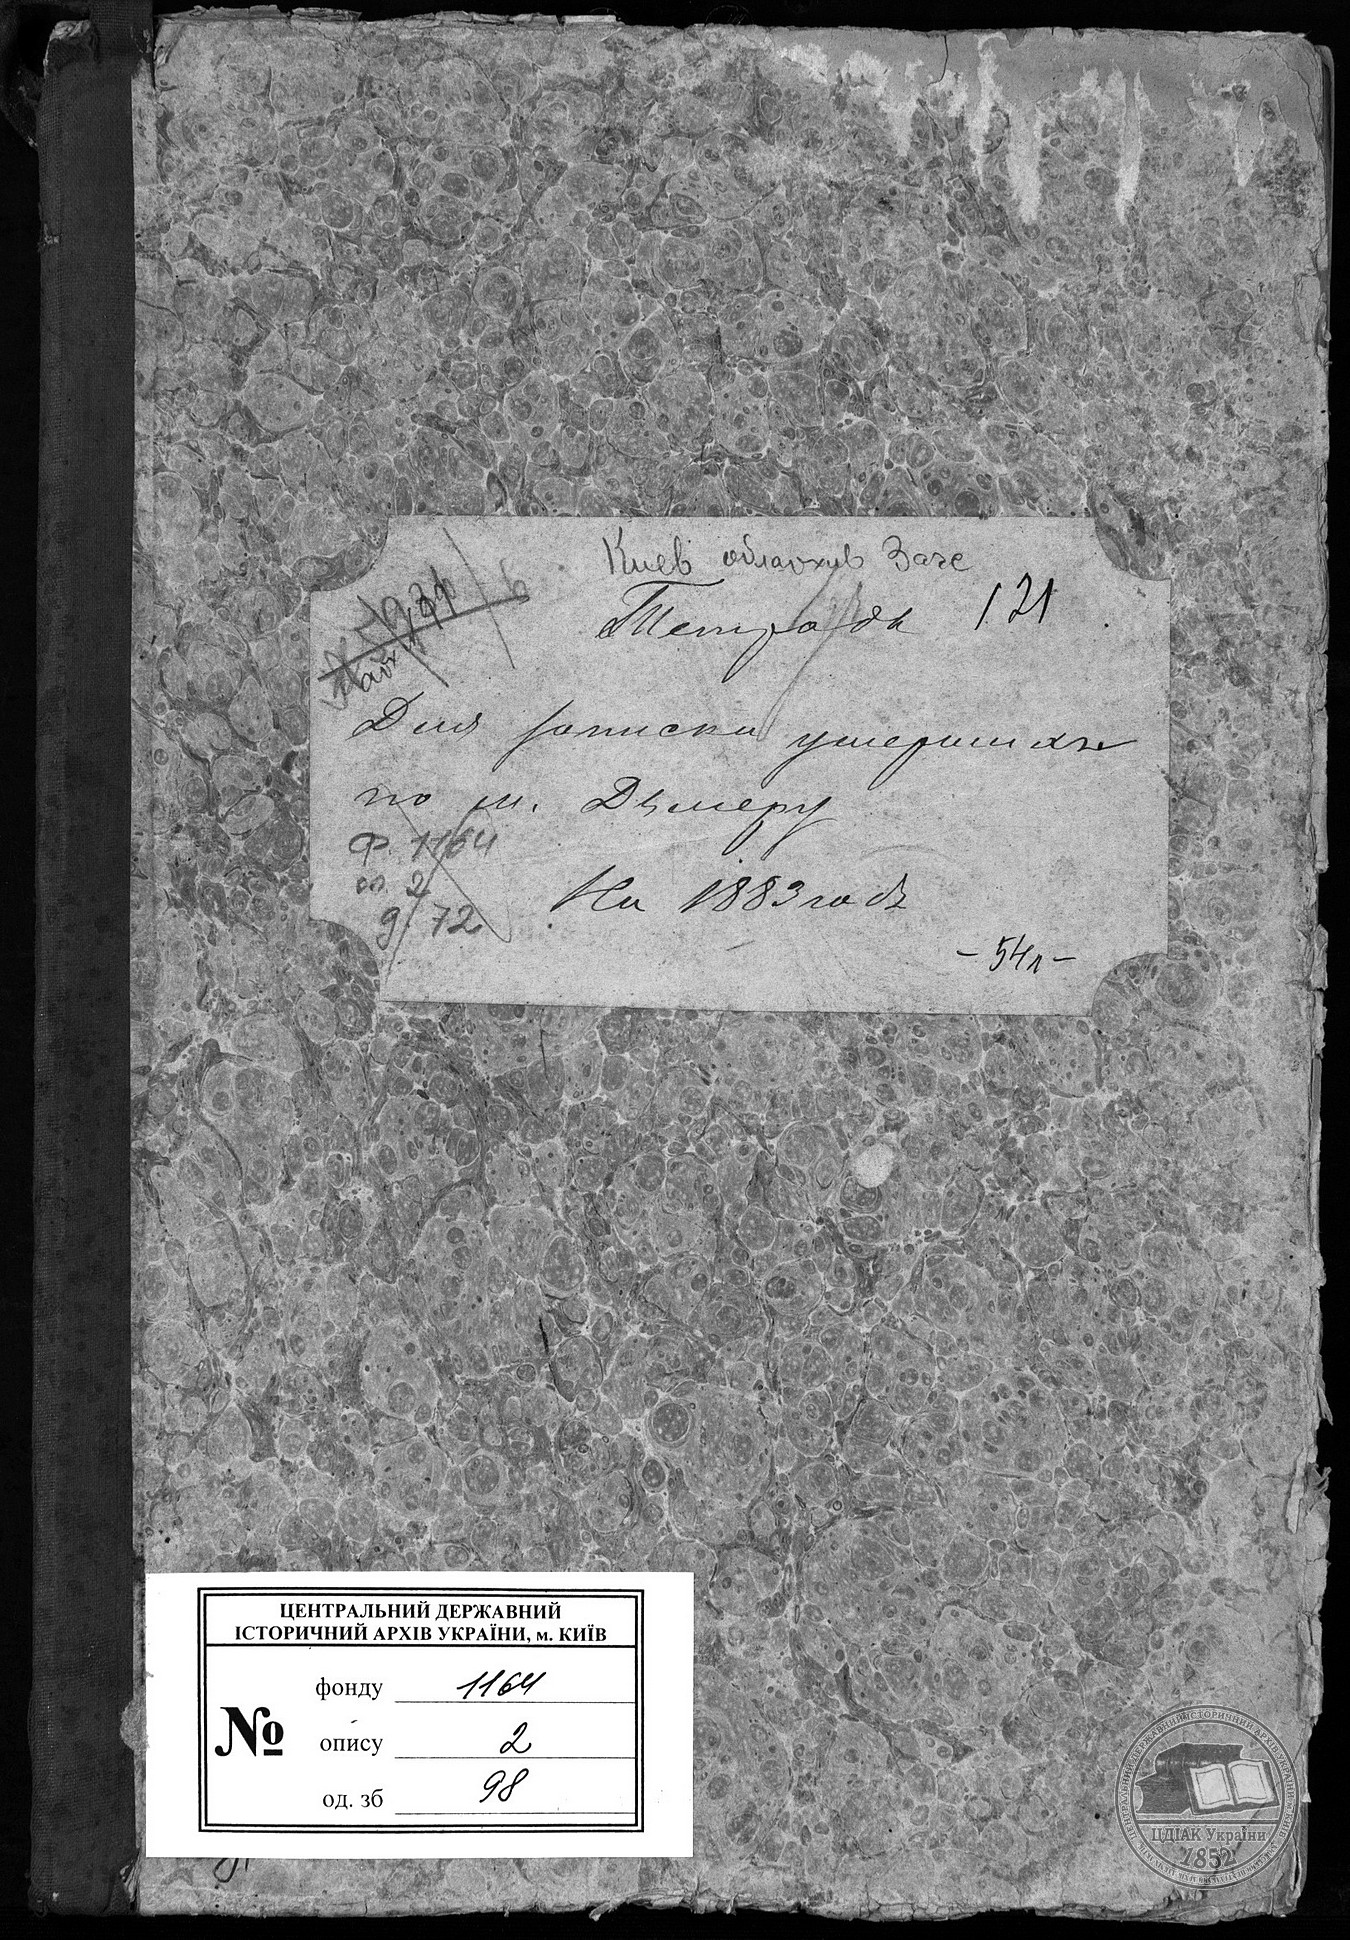 Киев облархив Заг
Тетрадь 121
Для записки умершихъ
по м. Дымеру
Ф. 1164
оп. 2
д. 72
На 1883 годъ
- 54л -
ЦЕНТРАЛЬНИЙ ДЕРЖАВНИЙ
ІСТОРИЧНИЙ АРХІВ УКРАЇНИ, м. КИЇВ
№
фонду 1164
опису 2
од. зб 98
ЦЕНТРАЛЬНИЙ ДЕРЖАВНИЙ ІСТОРИЧНИЙ АРХІВ УКРАЇНИ
ЦДІАК України
1852